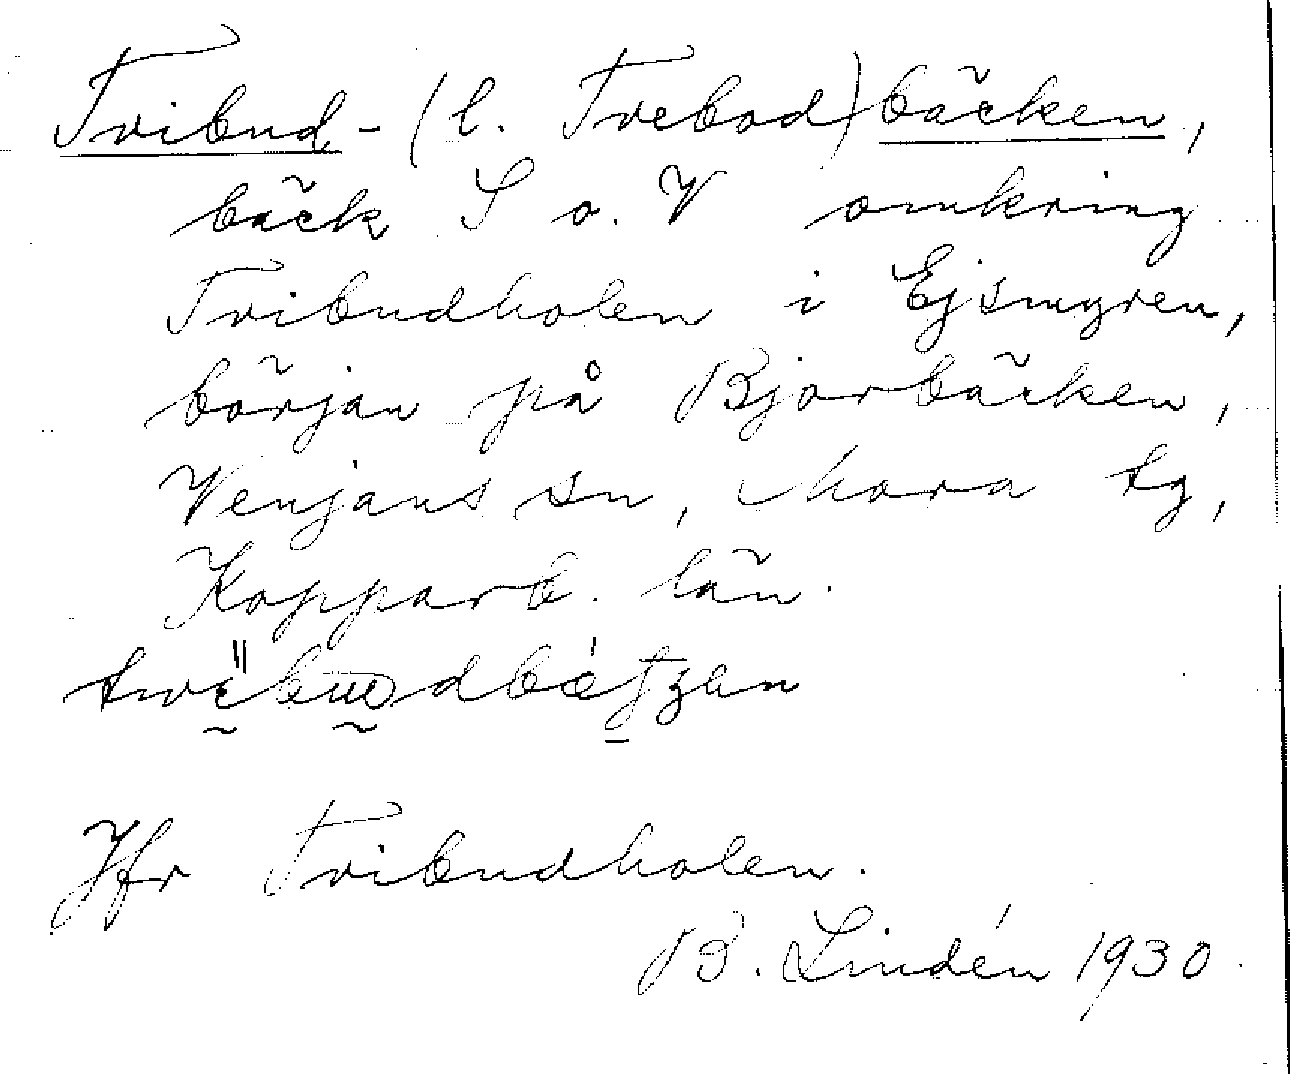 Tvibud- (l. Tvebod)bäcken,
bäck S o. V omkring
Tvibudholen i Ejsmyren,
början på Bjorbäcken,
Venjans sn, Mora tg,
Kopparb. län.
Jfr Tvibudholen.
B. Lindén 1930.